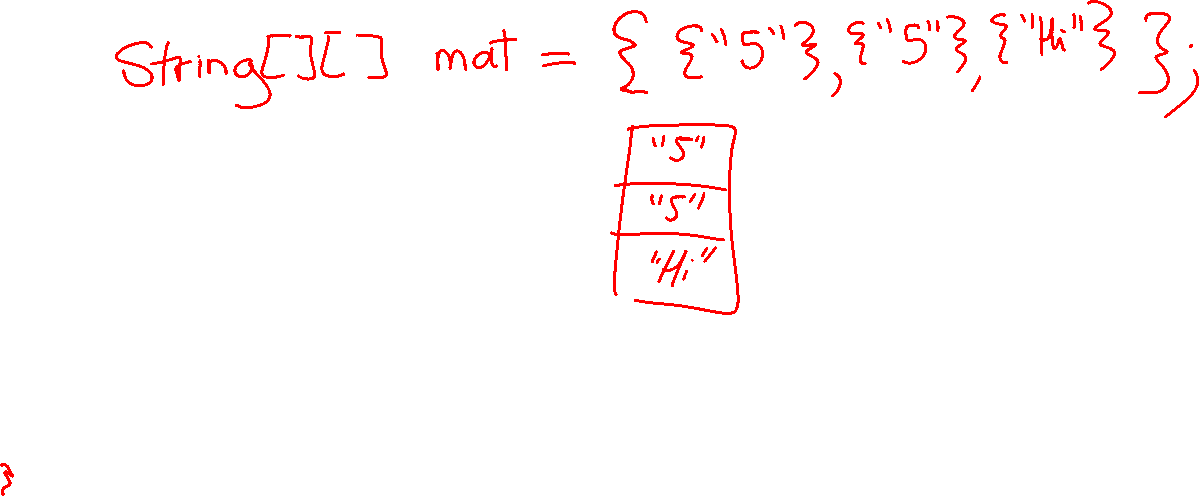 String[][] mat = { {"5"}, {"5"}, {"Hi"} };
"5"
"5"
"Hi"
}